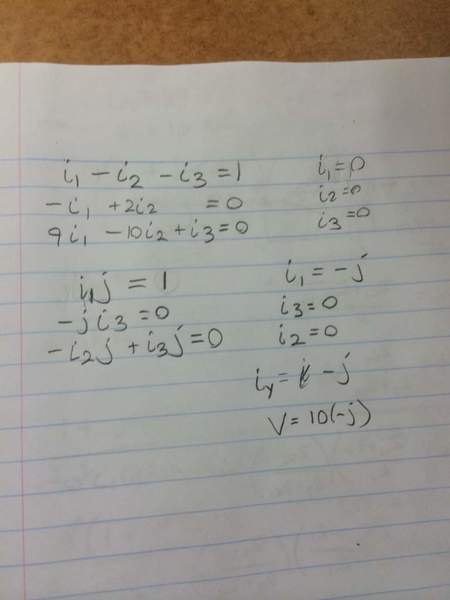 i₁ - i₂ - i₃ = 1
-i₁ + 2i₂ = 0
9i₁ - 10i₂ + i₃ = 0
i₁ = 0
i₂ = 0
i₃ = 0
i₁j = 1
-j i₃ = 0
-i₂j + i₃j = 0
i₁ = -j
i₃ = 0
i₂ = 0
iᵧ = -j
V = 10(-j)